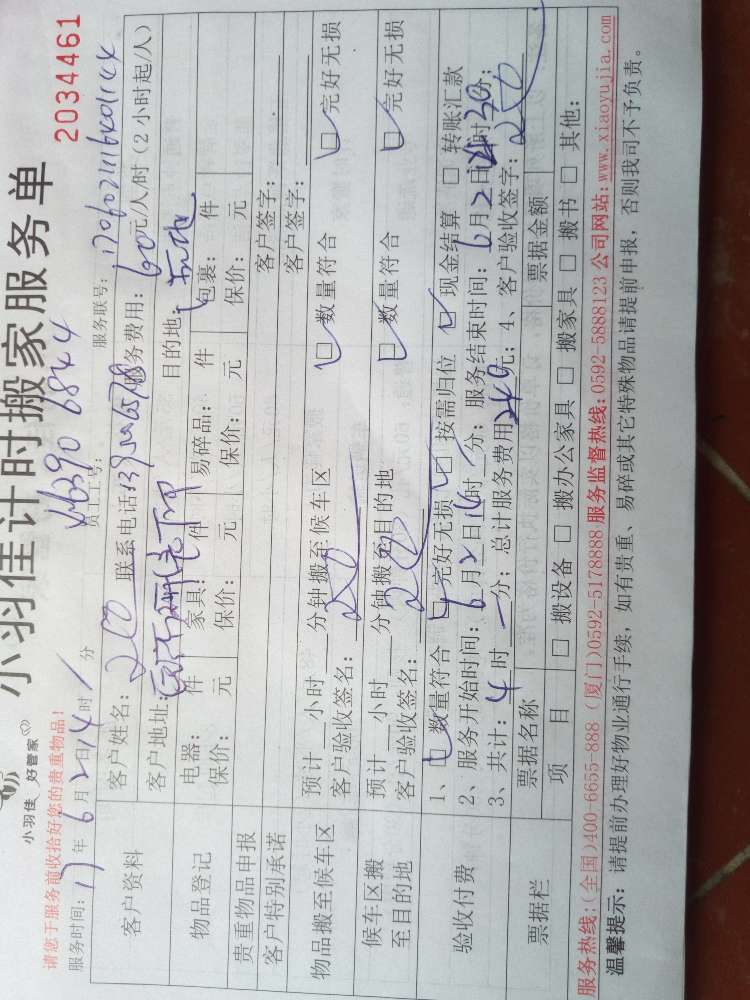 小羽佳计时搬家服务单
小羽佳 好管家
2034461
请您于服务前收拾好您的贵重物品!
服务时间: 17年6月2日14时 分 员工工号: 服务联号:
客户资料 客户姓名: 联系电话 服务费用: 60元/人/时(2小时起/人)
客户地址: 目的地:
物品登记 电器: 件 家具: 件 易碎品: 件 包裹: 件
保价: 元 保价: 元 保价: 元 保价: 元
贵重物品申报 客户签字:
客户特别承诺 客户签字:
物品搬至候车区 预计 小时 分钟搬至候车区 □ 数量符合 □ 完好无损
客户验收签名:
候车区搬至目的地 预计 小时 分钟搬至目的地 □ 数量符合 □ 完好无损
客户验收签名:
验收付费 1、□ 数量符合 □ 完好无损 □ 按需归位 □ 现金结算 □ 转账汇款
2、服务开始时间: 6月2日 时 分; 服务结束时间: 6月2日 时30分;
3、共计: 4时 分; 总计服务费用240元; 4、客户验收签字:
票据栏 票据名称 票据金额
项 目 □ 搬设备 □ 搬办公家具 □ 搬家具 □ 搬书 □ 其他:
服务热线:(全国)400-6655-888 (厦门)0592-5178888 服务监督热线: 0592-5888123 公司网站: www.xiaoyujia.com
温馨提示: 请提前办理好物业通行手续, 如有贵重、易碎或其它特殊物品请提前申报, 否则我司不予负责。